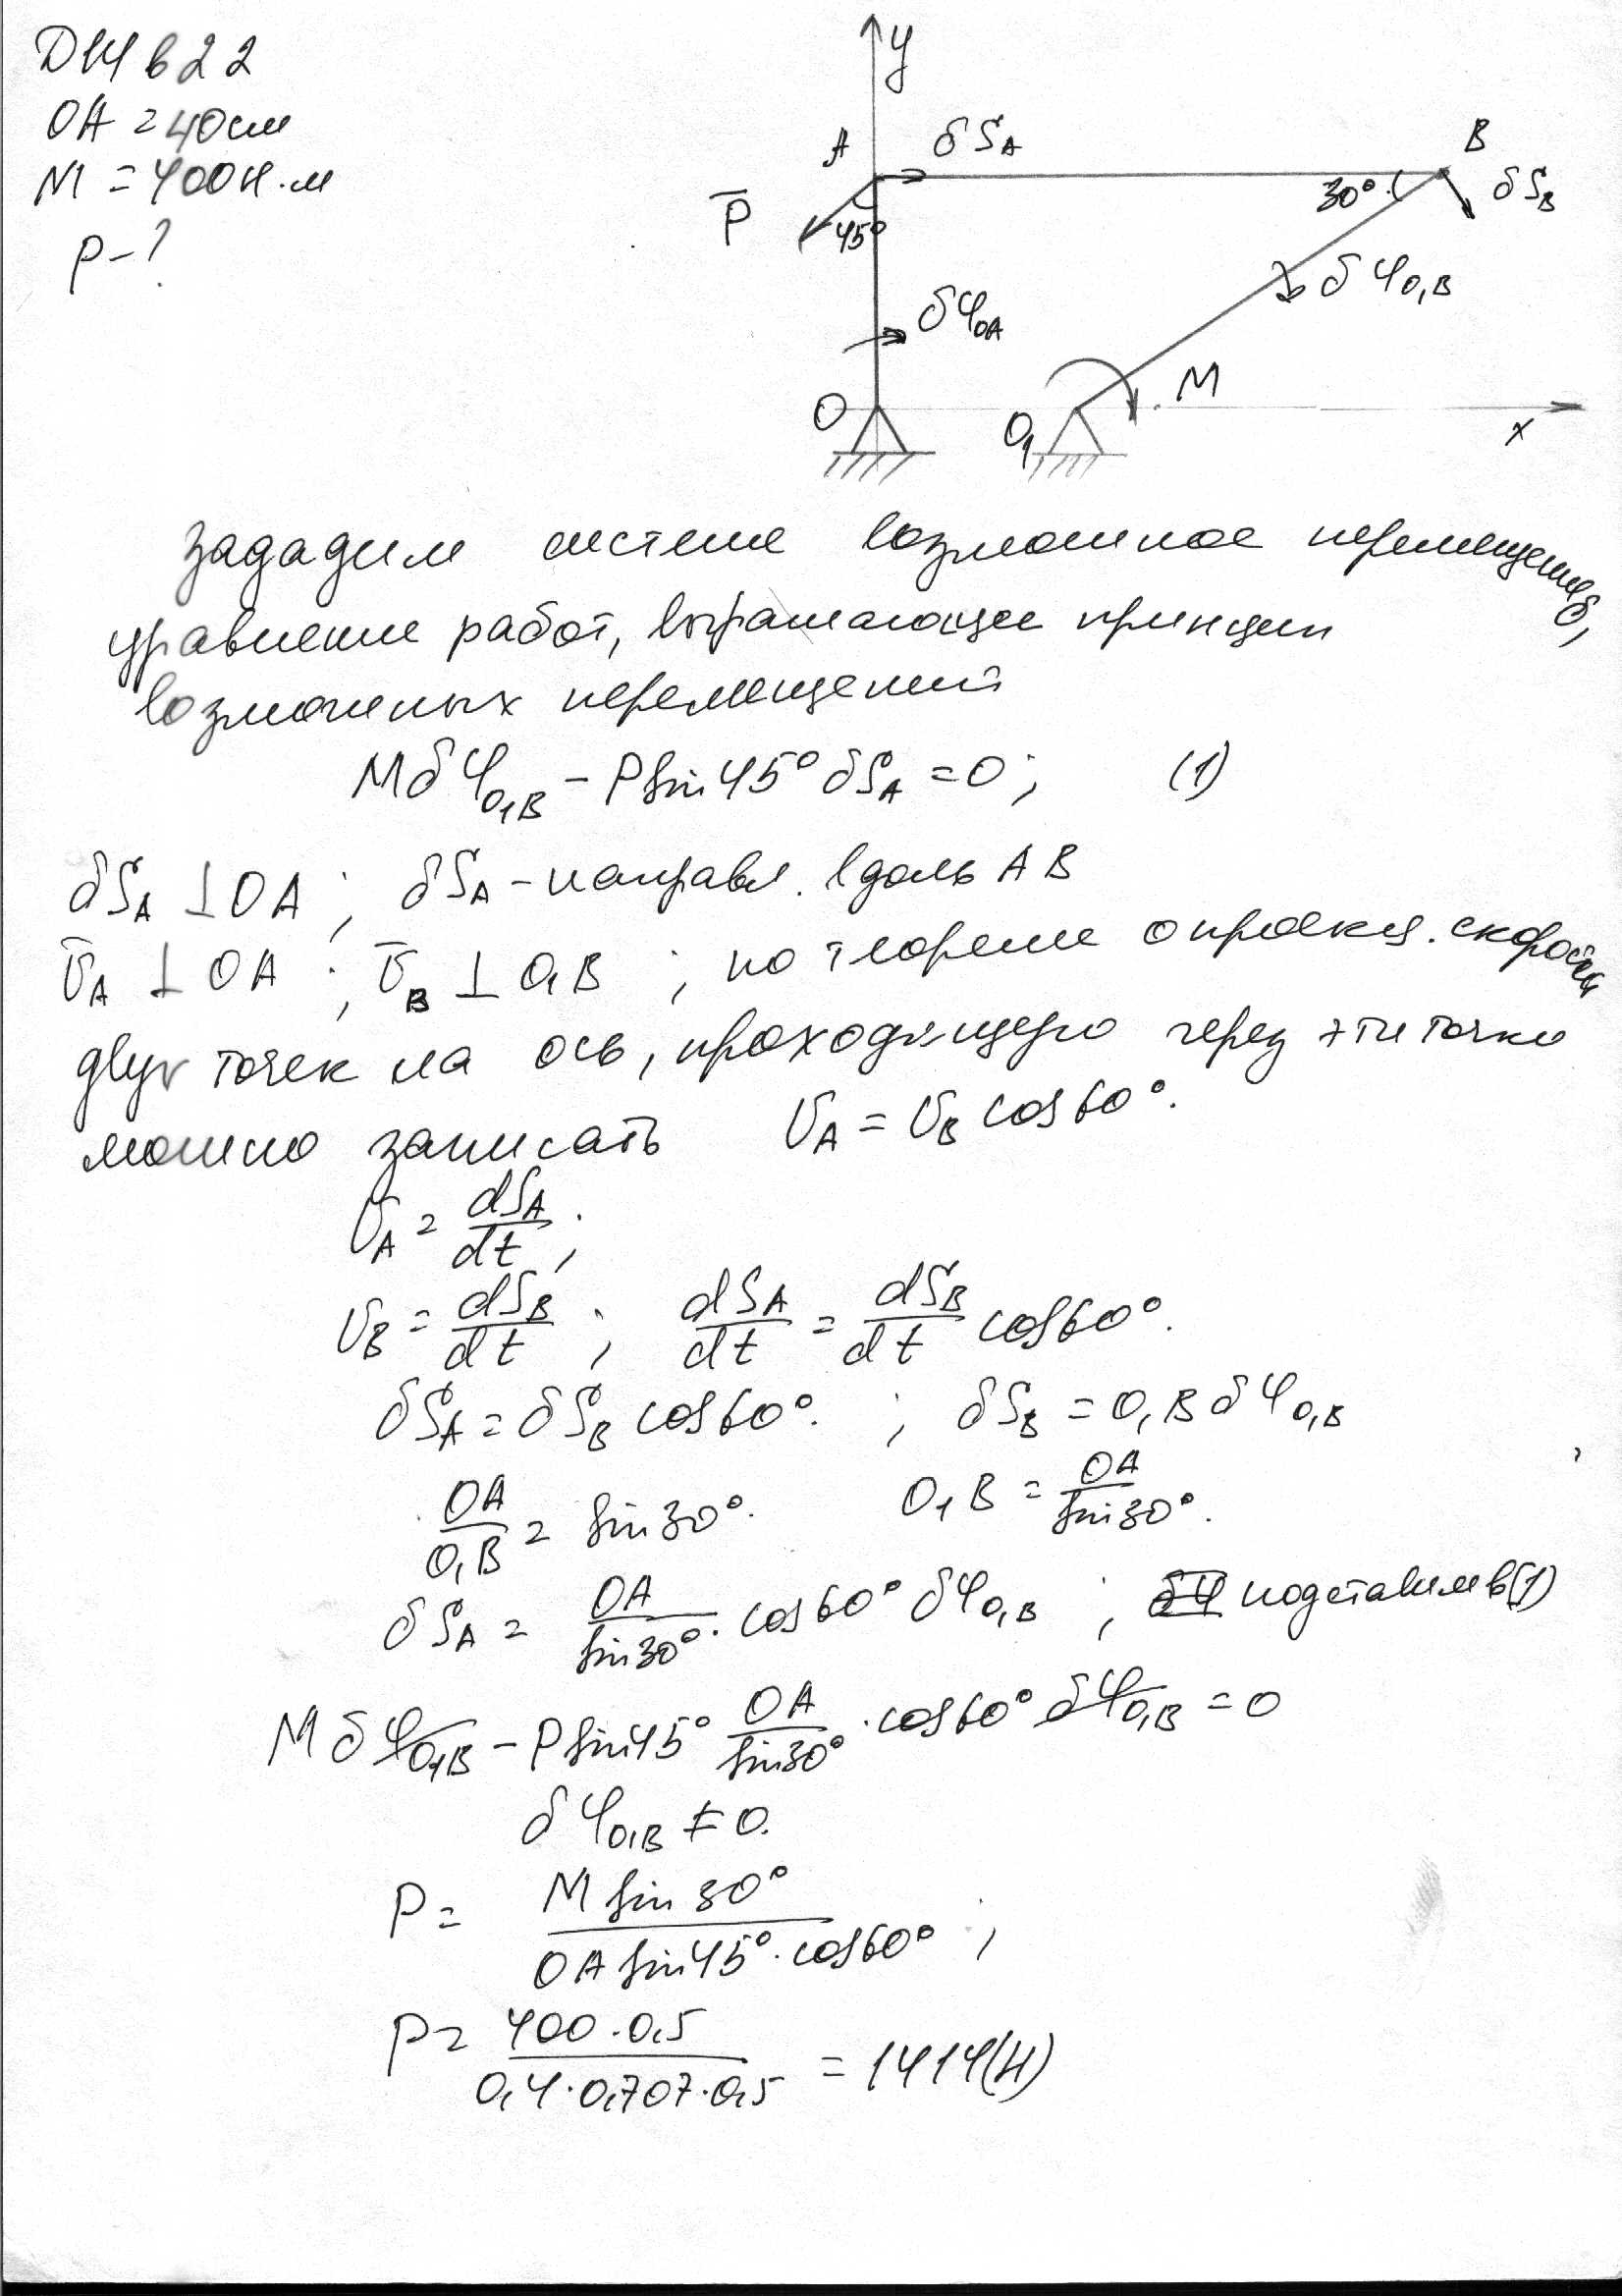 Д14 в22
OA = 40см
M = 400Н·м
P-?
y
A
δS_A
B
30°
δS_B
P̅
45°
δφ_O₁B
δφ_OA
M
O
O₁
x
зададим системе возможное перемещение,
уравнение работ, выражающее принцип
возможных перемещений
Mδφ_O₁B - P sin45° δS_A = 0; (1)
δS_A ⊥ OA; δS_A - направл. вдоль AB
υ̅_A ⊥ OA; υ̅_B ⊥ O₁B; по теореме о проекц. скоростей
двух точек на ось, проходящую через эти точки
можно записать υ_A = υ_B cos60°.
υ_A = dS_A/dt;
υ_B = dS_B/dt; dS_A/dt = dS_B/dt cos60°.
δS_A = δS_B cos60°.; δS_B = O₁B δφ_O₁B
OA/O₁B = sin30°. O₁B = OA/sin30°.
δS_A = OA/sin30° · cos60° δφ_O₁B; подставим в (1)
Mδφ_O₁B - P sin45° OA/sin30° · cos60° δφ_O₁B = 0
δφ_O₁B ≠ 0.
P = M sin30°/OA sin45° · cos60°;
P = 400·0,5/0,4·0,707·0,5 = 1414(Н)